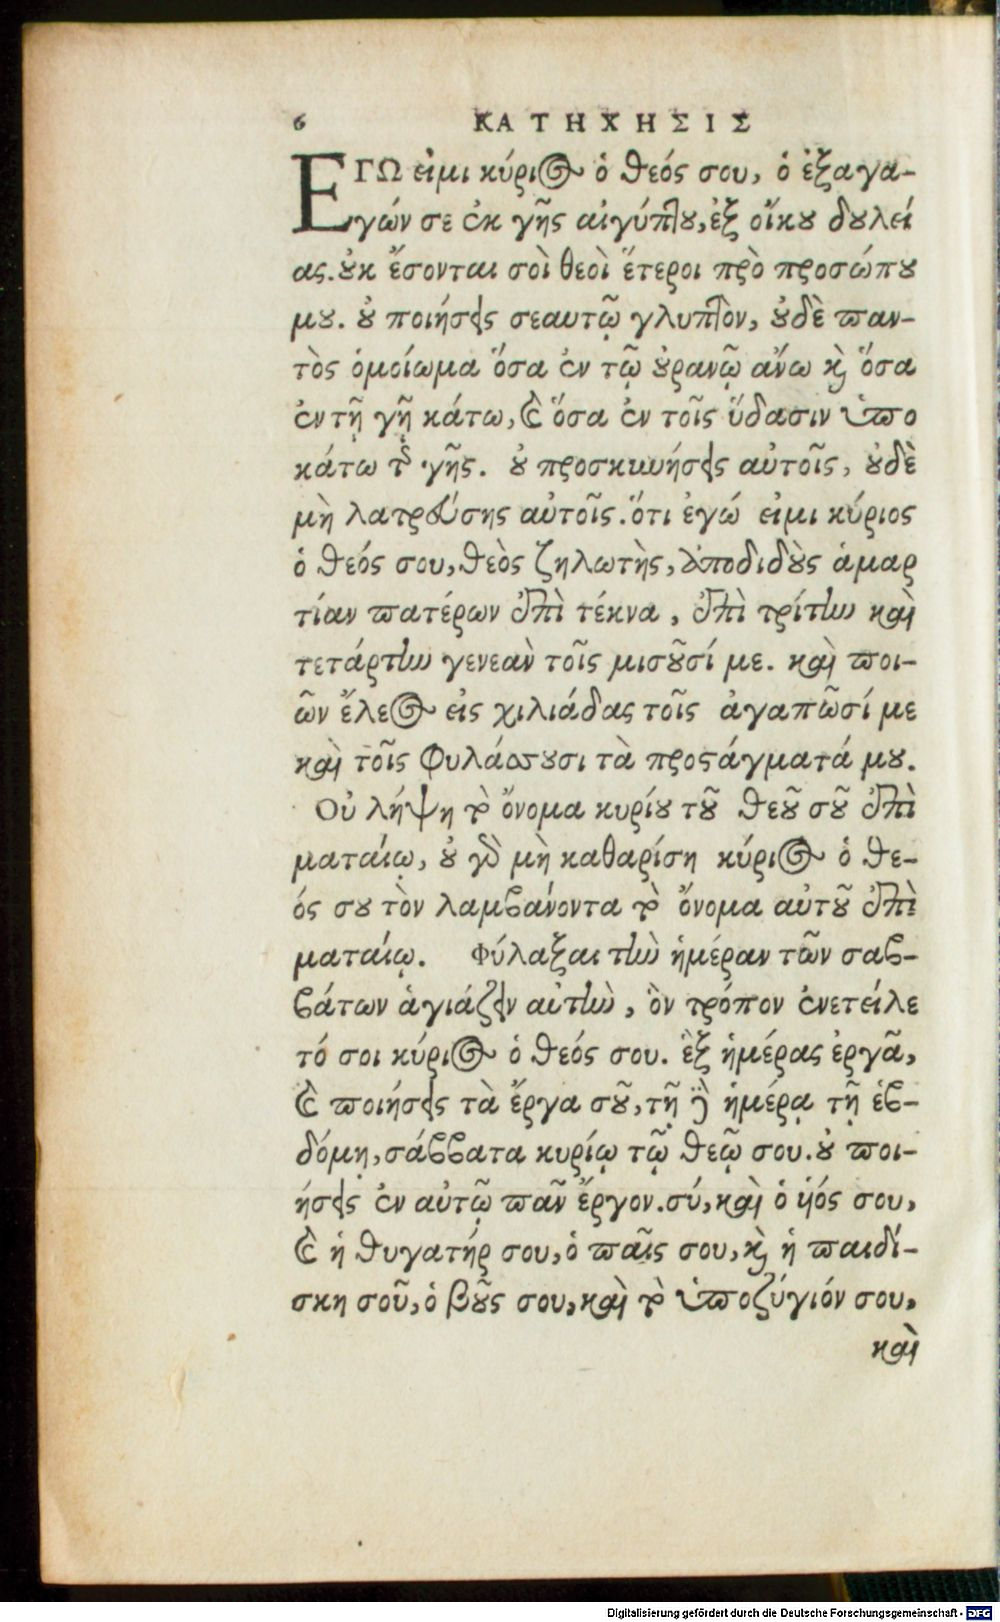 6 ΚΑΤΗΧΗΣΙΣ
ΕΓΩ εἰμι κύριος ὁ θεός σου, ὁ ἐξαγα-
γών σε ἐκ γῆς αἰγύπτου, ἐξ οἴκου δουλεί
ας. οὐκ ἔσονται σοὶ θεοὶ ἕτεροι πρὸ προσώπου
μου. οὐ ποιήσεις σεαυτῷ γλυπτὸν, οὐδὲ παν-
τὸς ὁμοίωμα ὅσα ἐν τῷ οὐρανῷ ἄνω καὶ ὅσα
ἐν τῇ γῇ κάτω, καὶ ὅσα ἐν τοῖς ὕδασιν ὑπο
κάτω τῆς γῆς. οὐ προσκυνήσεις αὐτοῖς, οὐδὲ
μὴ λατρεύσης αὐτοῖς. ὅτι ἐγώ εἰμι κύριος
ὁ θεός σου, θεὸς ζηλωτὴς, ἀποδιδοὺς ἁμαρ
τίαν πατέρων ἐπὶ τέκνα, ἐπὶ τρίτην καὶ
τετάρτην γενεὰν τοῖς μισοῦσί με. καὶ ποι-
ῶν ἔλεος εἰς χιλιάδας τοῖς ἀγαπῶσί με
καὶ τοῖς φυλάσσουσι τὰ προστάγματά μου.
Οὐ λήψη τὸ ὄνομα κυρίου τοῦ θεοῦ σοῦ ἐπὶ
ματαίῳ, οὐ γὰρ μὴ καθαρίση κύριος ὁ θε-
ός σου τὸν λαμβάνοντα τὸ ὄνομα αὐτοῦ ἐπὶ
ματαίῳ. Φύλαξαι τὴν ἡμέραν τῶν σαβ-
βάτων ἁγιάζειν αὐτὴν, ὃν τρόπον ἐνετείλε
τό σοι κύριος ὁ θεός σου. ἓξ ἡμέρας ἐργᾶ,
καὶ ποιήσεις τὰ ἔργα σοῦ, τῇ δὲ ἡμέρᾳ τῇ ἑβ-
δόμῃ, σάββατα κυρίῳ τῷ θεῷ σου. οὐ ποι-
ήσεις ἐν αὐτῷ πᾶν ἔργον. σύ, καὶ ὁ ὑιός σου,
καὶ ἡ θυγατήρ σου, ὁ παῖς σου, καὶ ἡ παιδί-
σκη σοῦ, ὁ βοῦς σου, καὶ τὸ ὑποζύγιόν σου,
καὶ
Digitalisierung gefördert durch die Deutsche Forschungsgemeinschaft - DFG